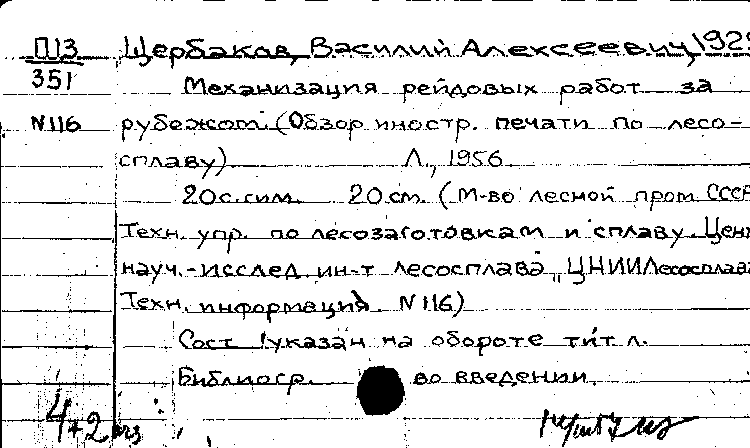 П13 Щербаков, Василий Алексеевич, 192
351 Механизация рейдовых работ за
N116 рубежом. (Обзор иностр. печати по лесо-
сплаву) Л., 1956.
20 с. 20 см. (М-во лесной пром. СССР
Техн. упр. по лесозаготовкам и сплаву. Цен
науч.-исслед. ин-т лесосплава „ЦНИИЛесосплава
Техн. информация N116)
Сост. указан на обороте тит. л.
Библиогр. во введении.
4+2